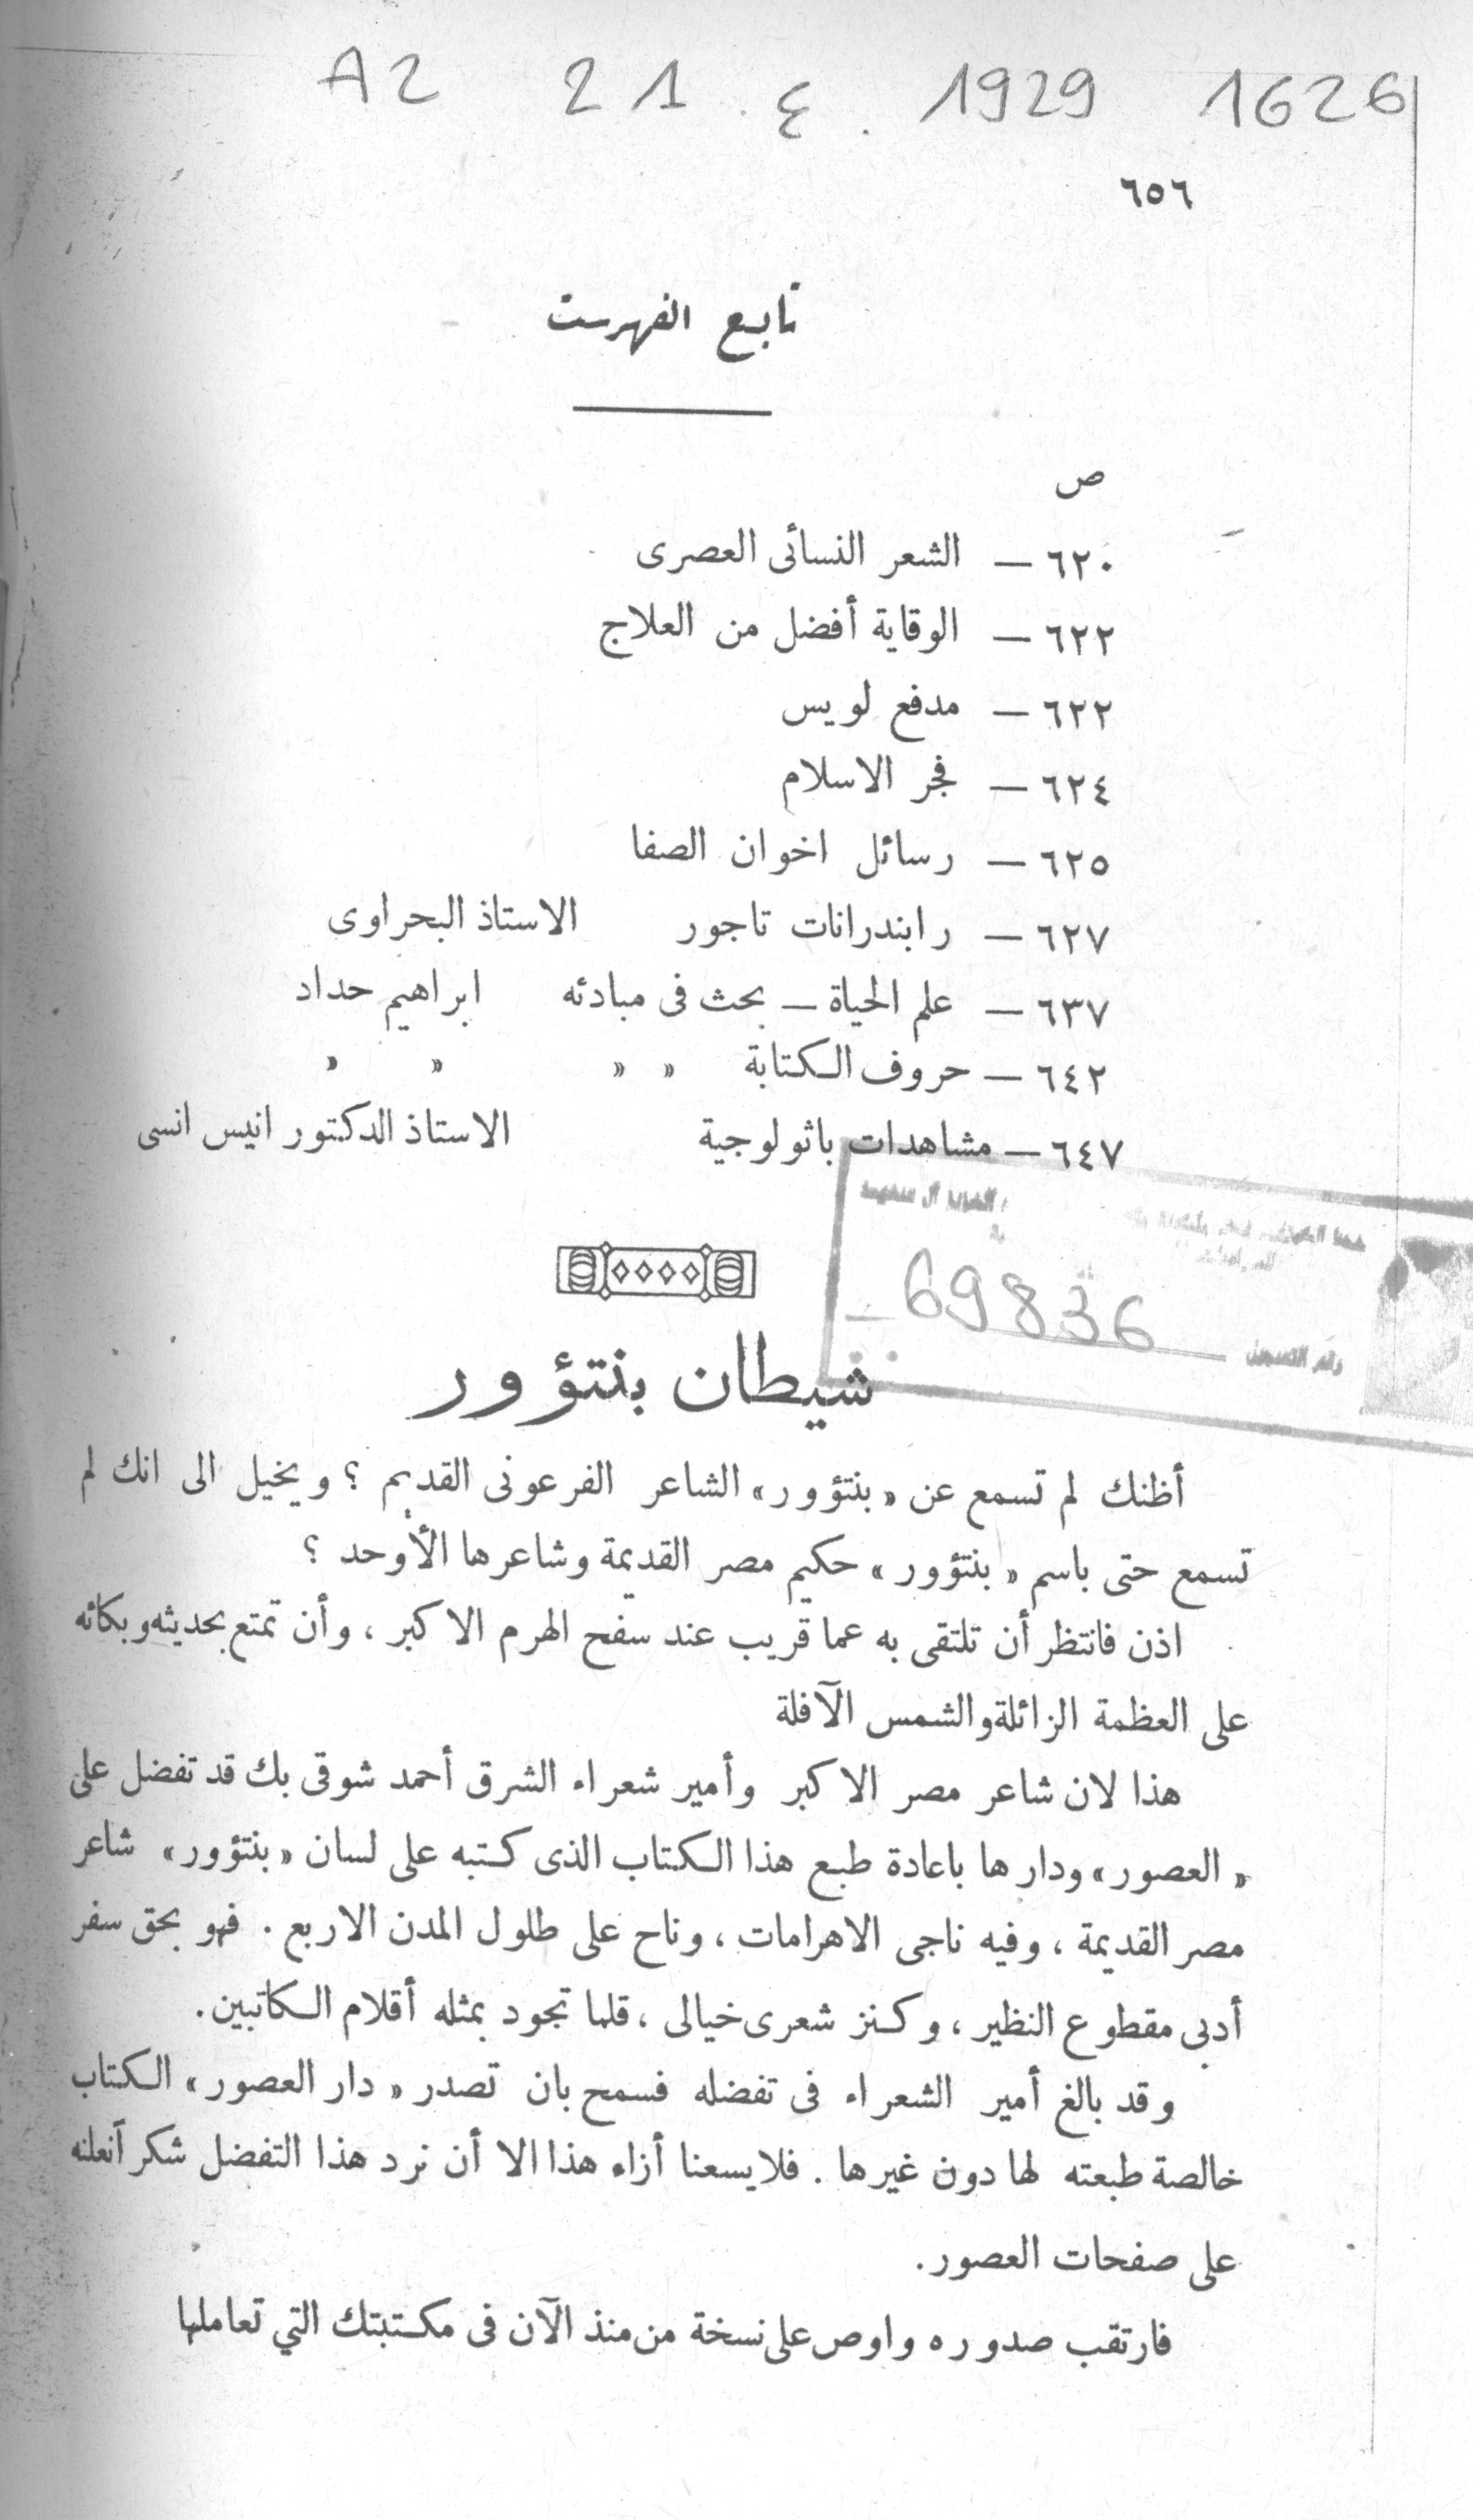 A2 21 . ٤ . 1929 1626
٦٥٦
تابع الفهرست
ص
٦٢٠ — الشعر النسائى العصرى
٦٢٢ — الوقاية أفضل من العلاج
٦٢٢ — مدفع لويس
٦٢٤ — فجر الاسلام
٦٢٥ — رسائل اخوان الصفا
٦٢٧ — رابندرانات تاجور الاستاذ البحراوى
٦٣٧ — علم الحياة — بحث فى مبادئه ابراهيم حداد
٦٤٢ — حروف الكتابة » » » »
٦٤٧ — مشاهدات باثولوجية الاستاذ الدكتور انيس انسى
69836
شيطان بنتؤور
أظنك لم تسمع عن « بنتؤور » الشاعر الفرعونى القديم ؟ ويخيل الى انك لم
تسمع حتى باسم « بنتؤور » حكيم مصر القديمة وشاعرها الأوحد ؟
اذن فانتظر أن تلتقى به عما قريب عند سفح الهرم الاكبر ، وأن تمتع بحديثه وبكائه
على العظمة الزائلة والشمس الآفلة
هذا لان شاعر مصر الاكبر وأمير شعراء الشرق أحمد شوقى بك قد تفضل على
« العصور » ودارها باعادة طبع هذا الكتاب الذى كتبه على لسان « بنتؤور » شاعر
مصر القديمة ، وفيه ناجى الاهرامات ، وناح على طلول المدن الاربع . فهو بحق سفر
أدبى مقطوع النظير ، وكنز شعرى خيالى ، قلما تجود بمثله أقلام الكاتبين .
وقد بالغ أمير الشعراء فى تفضله فسمح بان تصدر « دار العصور » الكتاب
خالصة طبعته لها دون غيرها . فلا يسعنا أزاء هذا الا أن نرد هذا التفضل شكر آنعلنه
على صفحات العصور .
فارتقب صدوره واوص على نسخة من منذ الآن فى مكتبتك التي تعاملها